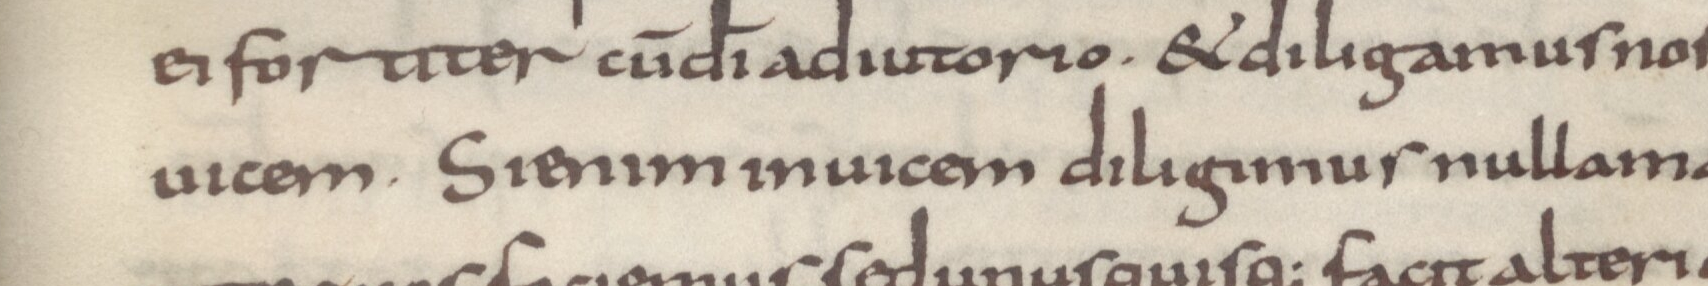 ei fortiter cū dī adiutorio. & diligamus nos
uicem. Si enim inuicem diligimus nullam
faciemus sed unusquisq; facit alteri